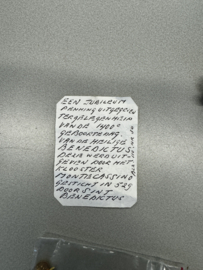 EEN JUBILEUM
PENNING UITGEGEVEN
TER GELAGENHEIM
VAN DE 1400e
GEBOORTEDAG
VAN DE HEILIGE
BENEDICTUS
DEZE WERD UIT-
GEGEVEN DOOR HET
KLOOSTER
MONTECASSINO
GESTICHT IN 529
DOOR SINT
BENEDICTUS